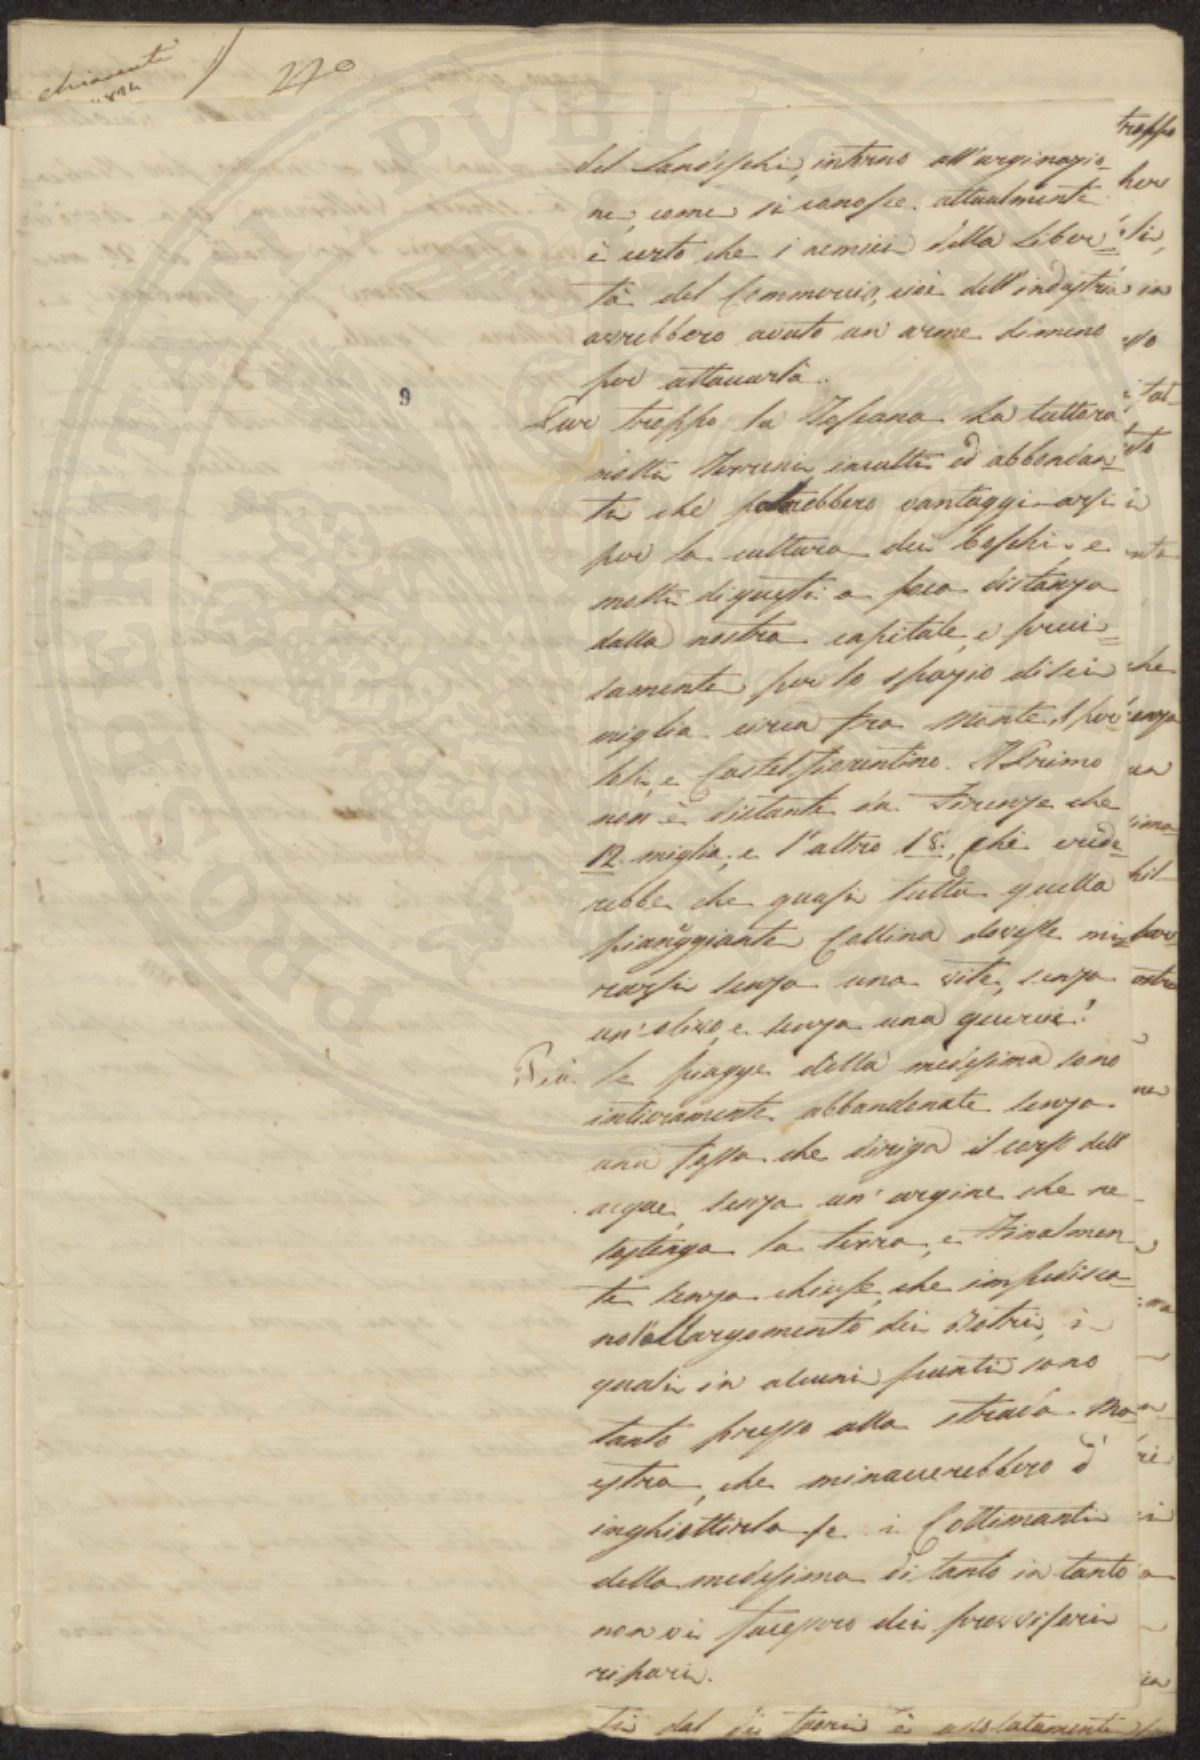 270
9
del Landeschi, intorno all'arginazio-
ne, come si conosce attualmente
è certo che i nemici della liber=
tà del Commercio, cioè dell'industria
avrebbero avuto un'arme di meno
per attaccarla.
Pur troppo la Toscana ha tuttora
molti Terreni inculti ed abbondan
ti che potrebbero vantaggiarsi
per la cultura dei Boschi, e
molti di questi a poca distanza
dalla nostra capitale, e preci=
samente per lo spazio di sei
miglia circa fra Monte Sper
toli, e Castelfiorentino. Il Primo
non è distante da Firenze che
12 miglia, e l'altro 18., chi crede=
rebbe che quasi tutta quella
piaggiante Collina dovesse mi=
rarsi senza una vite, senza
un'olivo, e senza una querce!
Più le piagge della medesima sono
intieramente abbandonate senza
una fossa che diriga il corso dell
acque, senza un'argine che ne
sostenga la terra, e Finalmen
te senza chiuse, che impedisca=
no l'allargamento dei Botri, i
quali in alcuni punti sono
tanto presso alla strada Ma
estra, che minaccerebbero d'
inghiottirla se i Cottimanti
della medesima di tanto in tanto
non vi facessero dei provvisori
ripari.
troppo
che
PROSPERITATI PVBLICAE